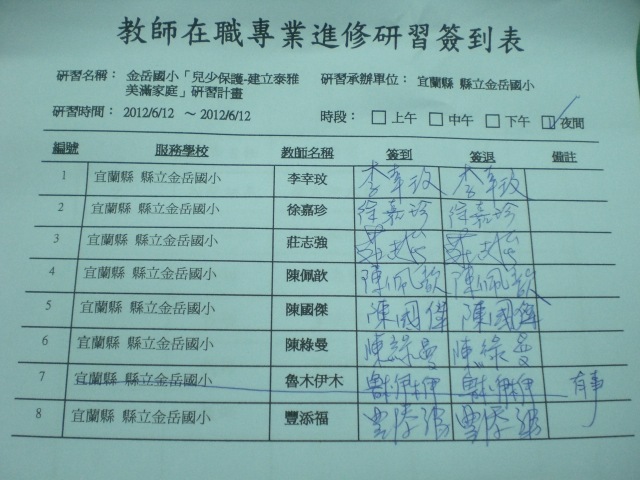 教師在職專業進修研習簽到表
研習名稱： 金岳國小「兒少保護-建立泰雅 研習承辦單位： 宜蘭縣 縣立金岳國小
美滿家庭」研習計畫
研習時間： 2012/6/12 ～2012/6/12 時段： □上午 □中午 □下午 ☑夜間
編號 服務學校 教師名稱 簽到 簽退 備註
1 宜蘭縣 縣立金岳國小 李幸玟 李幸玟 李幸玟
2 宜蘭縣 縣立金岳國小 徐嘉珍 徐嘉珍 徐嘉珍
3 宜蘭縣 縣立金岳國小 莊志強 莊志強 莊志強
4 宜蘭縣 縣立金岳國小 陳佩歆 陳佩歆 陳佩歆
5 宜蘭縣 縣立金岳國小 陳國傑 陳國傑 陳國傑
6 宜蘭縣 縣立金岳國小 陳綠曼 陳綠曼 陳綠曼
7 宜蘭縣 縣立金岳國小 魯木伊木 有事
8 宜蘭縣 縣立金岳國小 豐添福 豐添福 豐添福